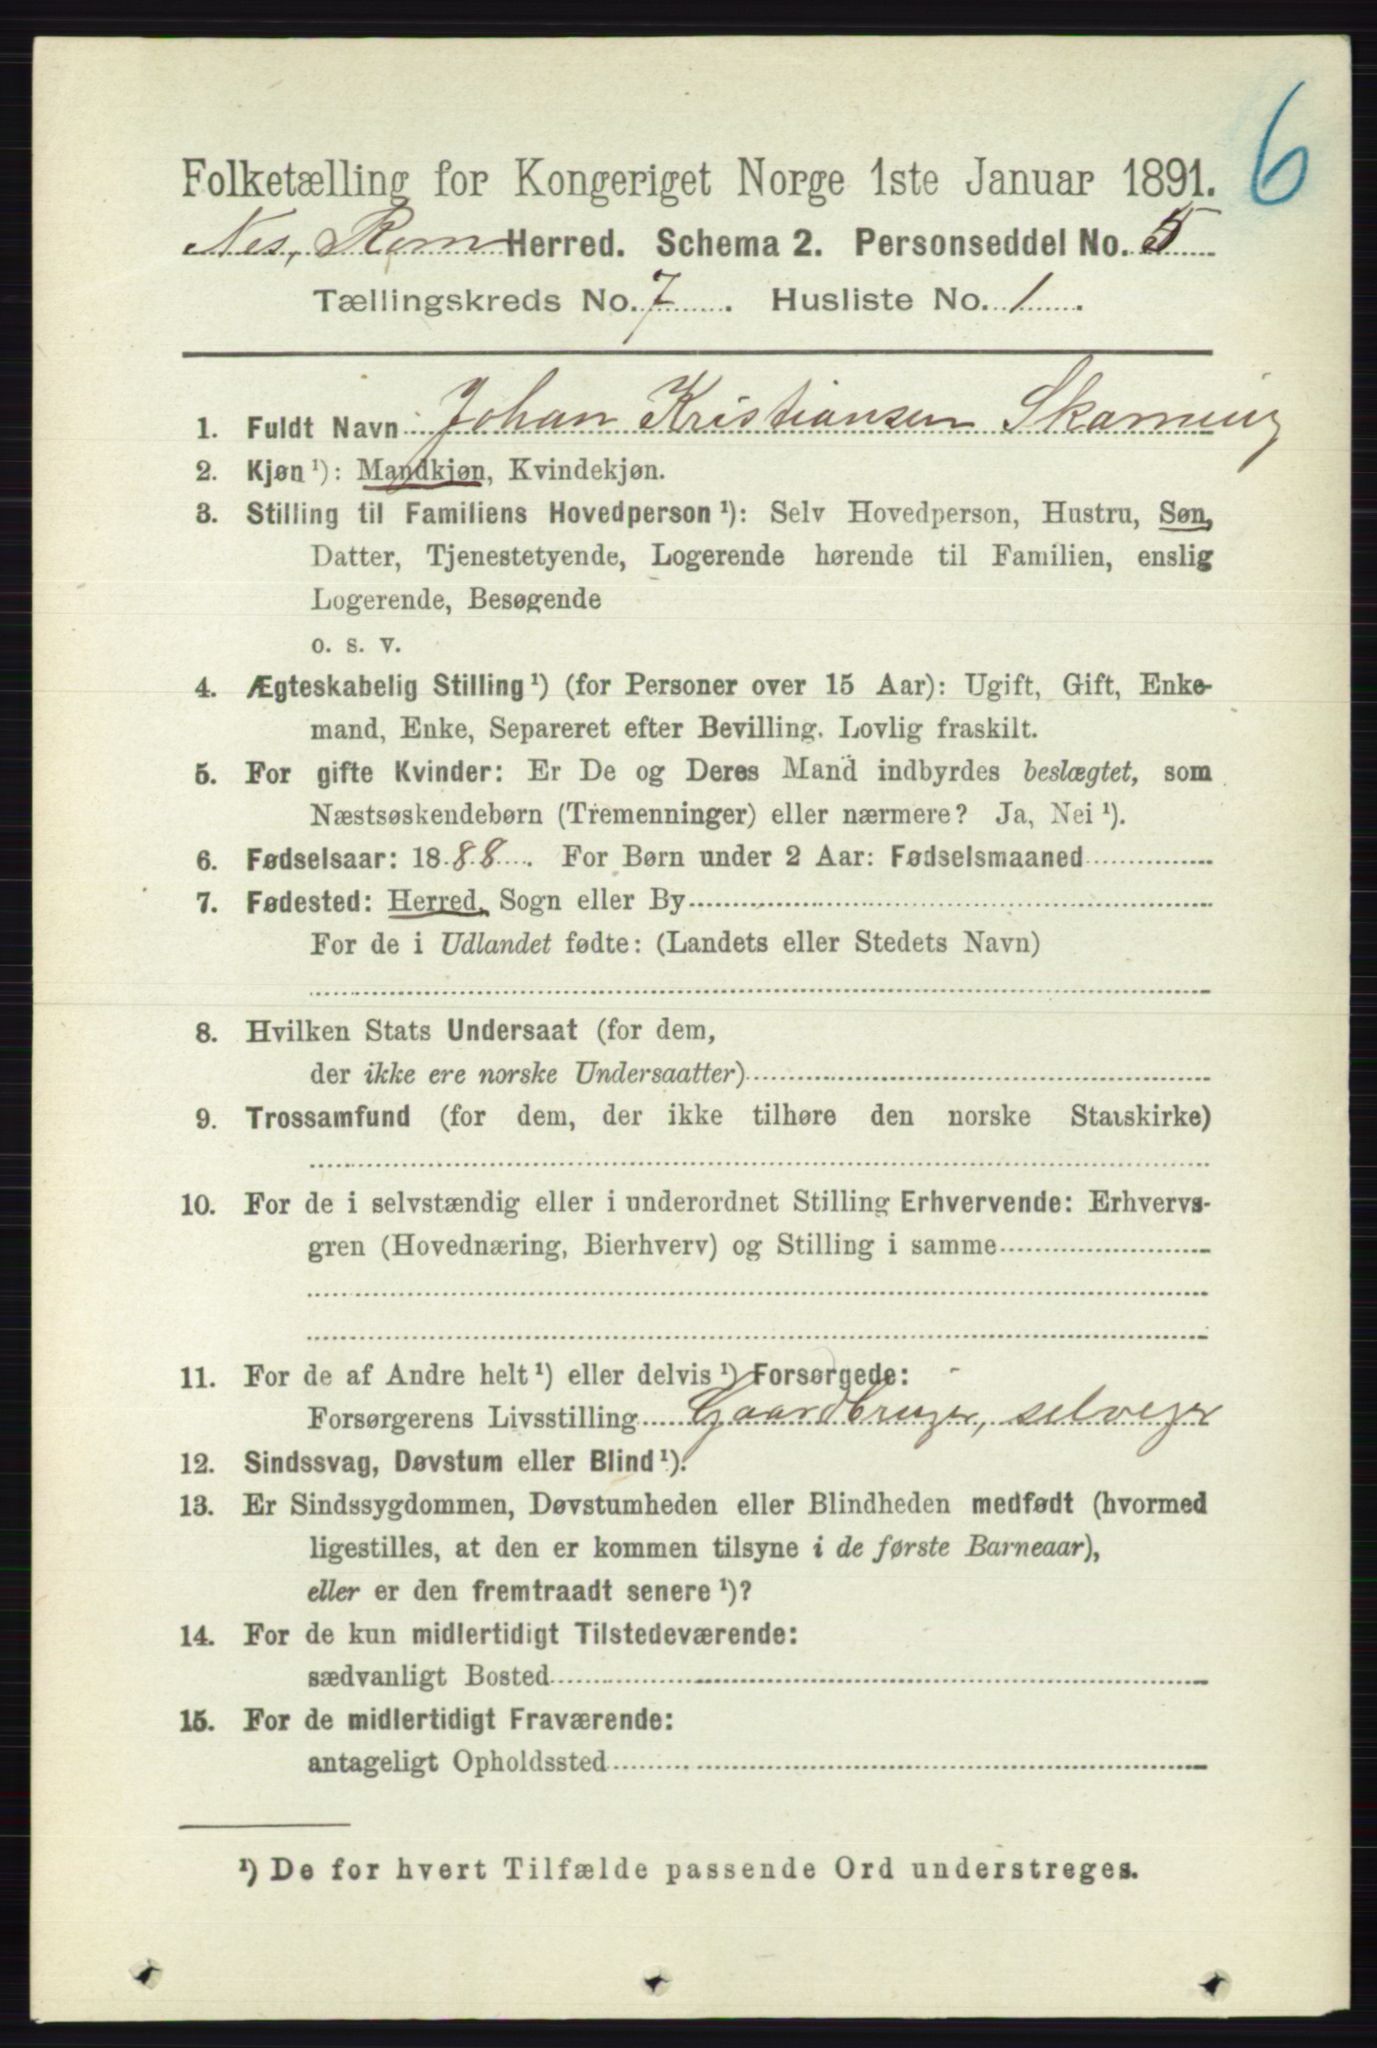 6
Folketælling for Kongeriget Norge 1ste Januar 1891.
Nes, Rom Herred. Schema 2. Personseddel No. 5
Tællingskreds No. 7. Husliste No. 1.
1. Fuldt Navn Johan Kristiansen
2. Kjøn ¹): Mandkjøn, Kvindekjøn.
3. Stilling til Familiens Hovedperson ¹): Selv Hovedperson, Hustru, Søn,
Datter, Tjenestetyende, Logerende hørende til Familien, enslig
Logerende, Besøgende
o. s. v.
4. Ægteskabelig Stilling ¹) (for Personer over 15 Aar): Ugift, Gift, Enke-
mand, Enke, Separeret efter Bevilling. Lovlig fraskilt.
5. For gifte Kvinder: Er De og Deres Mand indbyrdes beslægtet, som
Næstsøskendebørn (Tremenninger) eller nærmere? Ja, Nei ¹).
6. Fødselsaar: 1888. For Børn under 2 Aar: Fødselsmaaned
7. Fødested: Herred, Sogn eller By
For de i Udlandet fødte: (Landets eller Stedets Navn)
8. Hvilken Stats Undersaat (for dem,
der ikke ere norske Undersaatter)
9. Trossamfund (for dem, der ikke tilhøre den norske Statskirke)
10. For de i selvstændig eller i underordnet Stilling Erhvervende: Erhvervs-
gren (Hovednæring, Bierhverv) og Stilling i samme
11. For de af Andre helt ¹) eller delvis ¹) Forsørgede:
Forsørgerens Livsstilling Gaardbruger, selveier
12. Sindssvag, Døvstum eller Blind ¹).
13. Er Sindssygdommen, Døvstumheden eller Blindheden medfødt (hvormed
ligestilles, at den er kommen tilsyne i de første Barneaar),
eller er den fremtraadt senere ¹)?
14. For de kun midlertidigt Tilstedeværende:
sædvanligt Bosted
15. For de midlertidigt Fraværende:
antageligt Opholdssted
¹) De for hvert Tilfælde passende Ord understreges.